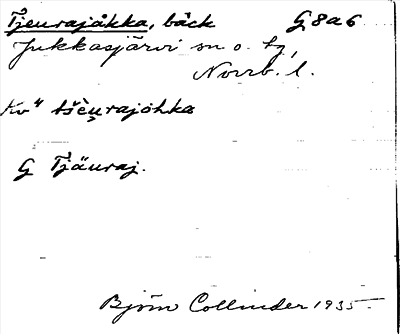 Tjeurajåkka, bäck G8a6
Jukkasjärvi sn o. tg,
Norrb. l.
kv" tšèu̯rajohka
G Tjäuraj.
Björn Collinder 1935